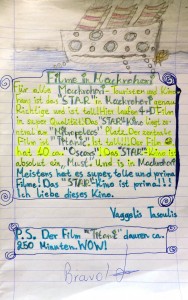 Filme in Mackrohori
Für alle Mackrohori-Touristen und Kino
fans ist das "STAR" in Mackrohori genau
Richtige und ist toll! Hier laufen 4-D Film
in super Qualität! Das "STAR" Kino liegt zen
tral am Platz. Der zentrale
Film ist "Titanic". Ist toll!!! Der Film
hat 40 "Oscars". Das "STAR" Kino ist
absolut ein "Must". Und is in Mackrohori
Meistens hat es super, tolle und prima
Filme! Das "STAR" Kino ist prima!!!
Ich liebe dieses Kino.
Vaggelis Tasoulis
P.S. Der Film "Titanic" dauren ca.
250 Minuten. WOW!
Bravo!